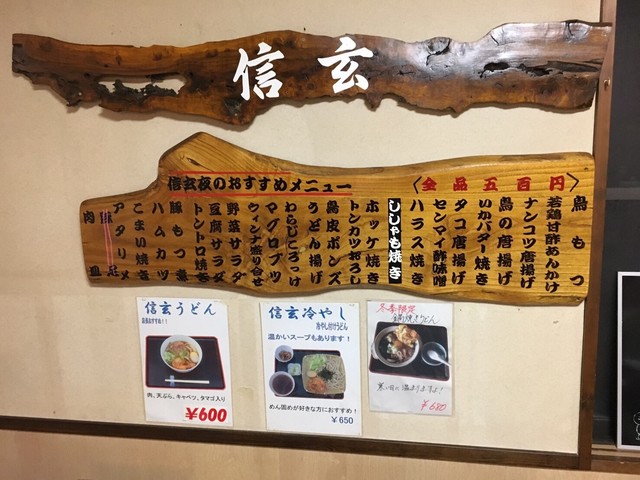 信玄
信玄夜のおすすめメニュー
〈全品五百円〉
鳥もつ
若鶏甘酢あんかけ
ナンコツ唐揚げ
鳥の唐揚げ
いかバター焼き
タコ唐揚げ
センマイ酢味噌
ハラス焼き
ししゃも焼き
ホッケ焼き
トンカツおろし
鳥皮ポンズ
うどん揚げ
わらじころっけ
マグロブツ
ウィンナ盛り合せ
野菜サラダ
豆腐サラダ
トントロ焼き
豚もつ煮
ハムカツ
こまい焼き
アタリメ
豚足
肉皿
信玄うどん
店長おすすめ！！
肉、天ぷら、キャベツ、タマゴ入り
¥600
信玄冷やし
冷やし付けうどん
温かいスープもあります！
めん固めが好きな方におすすめ！
¥650
冬季限定
鍋焼うどん
寒い日に温まりますよ！
¥680